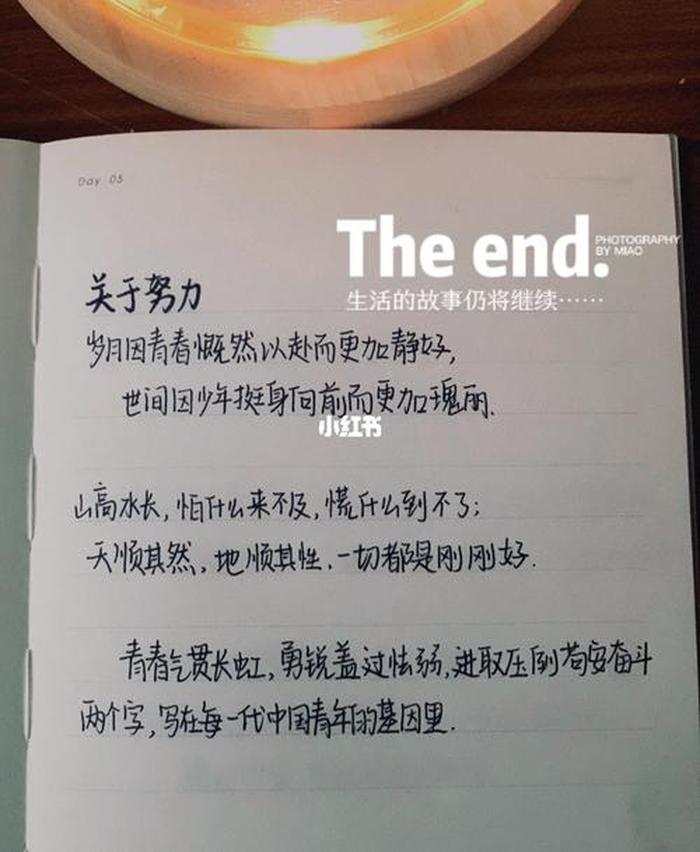 Day 05
The end.
PHOTOGRAPHY
BY MIAO
生活的故事仍将继续……
关于努力
岁月因青春慨然以赴而更加静好,
世间因少年挺身向前而更加瑰丽.
小红书
山高水长,怕什么来不及,慌什么到不了;
天顺其然,地顺其性,一切都是刚刚好.
青春气贯长虹,勇锐盖过怯弱,进取压倒苟安奋斗
两个字,写在每一代中国青年的基因里.